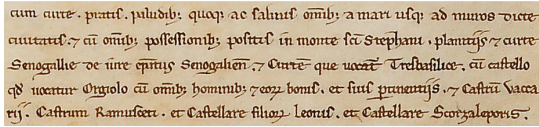 cum curte. pratis. paludib; quoq; ac salinis omib; a mari usq; ad muros dicte
ciuitatis. ⁊ cū omib; possessionib; positis in monte sc̄i Stephani. planitiis ⁊ curte
Senogallie de iure Senogalien̄. ⁊ Curtem que uocat̄ Tresbasilice. cū castello
qd̄ uocatur Orgiolo cū omib; hominib; ⁊ eoꝝ bonis. et suis ptinentiis. ⁊ Castrū Vacca
rii. Castrum Ramusceti. et Castellare filioꝝ Leonis. et Castellare Scorzaleporis.